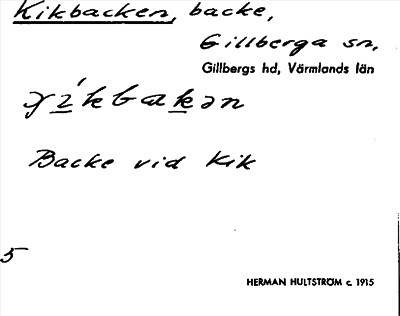 Kikbacken, backe,
Gillberga sn,
Gillbergs hd, Värmlands län
Backe vid Kik
5
HERMAN HULTSTRÖM c. 1915